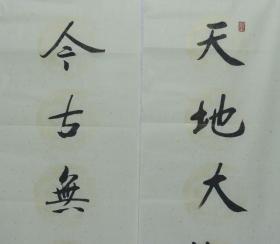 天地大
今古無